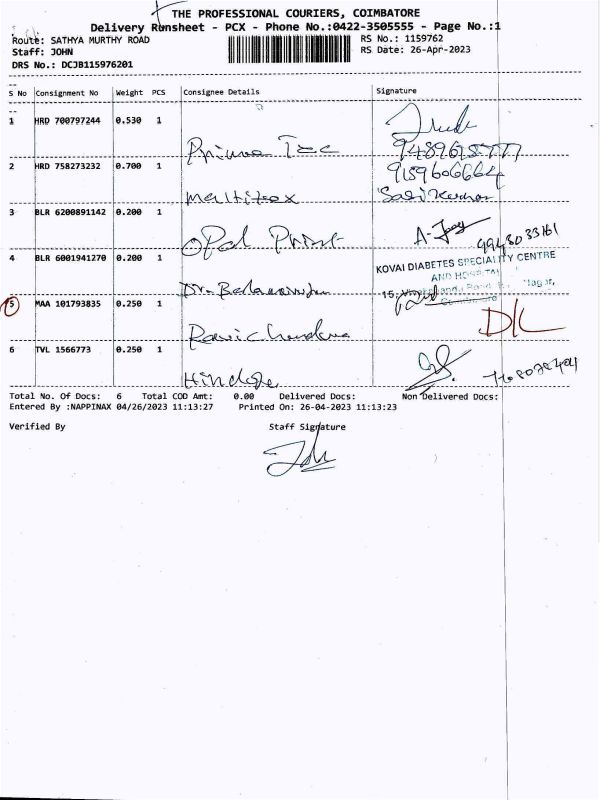 THE PROFESSIONAL COURIERS, COIMBATORE
Delivery Runsheet - PCX - Phone No.:0422-3505555 - Page No.:1
Route: SATHYA MURTHY ROAD
RS No.: 1159762
Staff: JOHN
RS Date: 26-Apr-2023
DRS No.: DCJB115976201
S No Consignment No Weight PCS Consignee Details Signature
1 HRD 700797244 0.530 1
Prima Tec
2 HRD 758273232 0.700 1 9159606664
Maltitex Sasikumar
3 BLR 6200891142 0.200 1
Opal Print
4 BLR 6001941270 0.200 1
KOVAI DIABETES SPECIALITY CENTRE
AND HOSPITAL
5 MAA 101793835 0.250 1 D/L
Ravichandra
6 TVL 1566773 0.250 1
Total No. Of Docs: 6 Total COD Amt: 0.00 Delivered Docs: Non Delivered Docs:
Entered By :NAPPINAX 04/26/2023 11:13:27 Printed On: 26-04-2023 11:13:23
Verified By Staff Signature